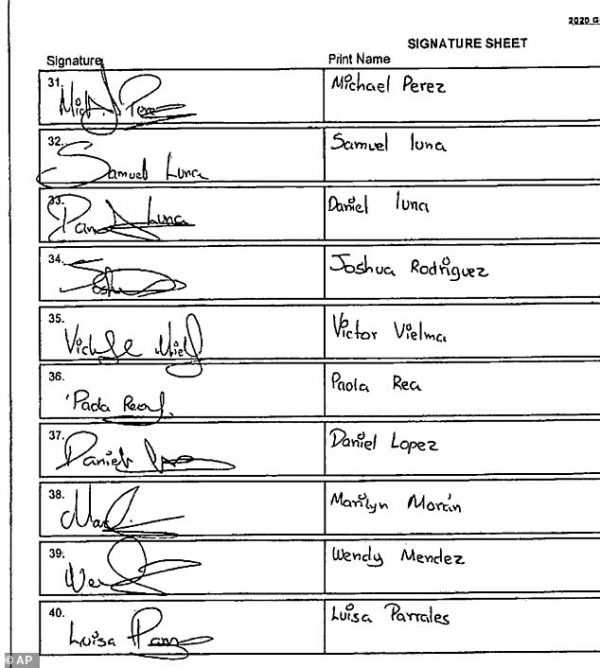 2020 G
SIGNATURE SHEET
Signature Print Name
31. Michael Perez
32. Samuel Luna Samuel luna
33. Luna Daniel luna
34. Joshua Rodriguez
35. Victor Vielma
36. Paola Rea
37. Daniel Daniel Lopez
38. Marilyn Morán
39. Wendy Mendez
40. Luisa Luisa Parrales
© AP